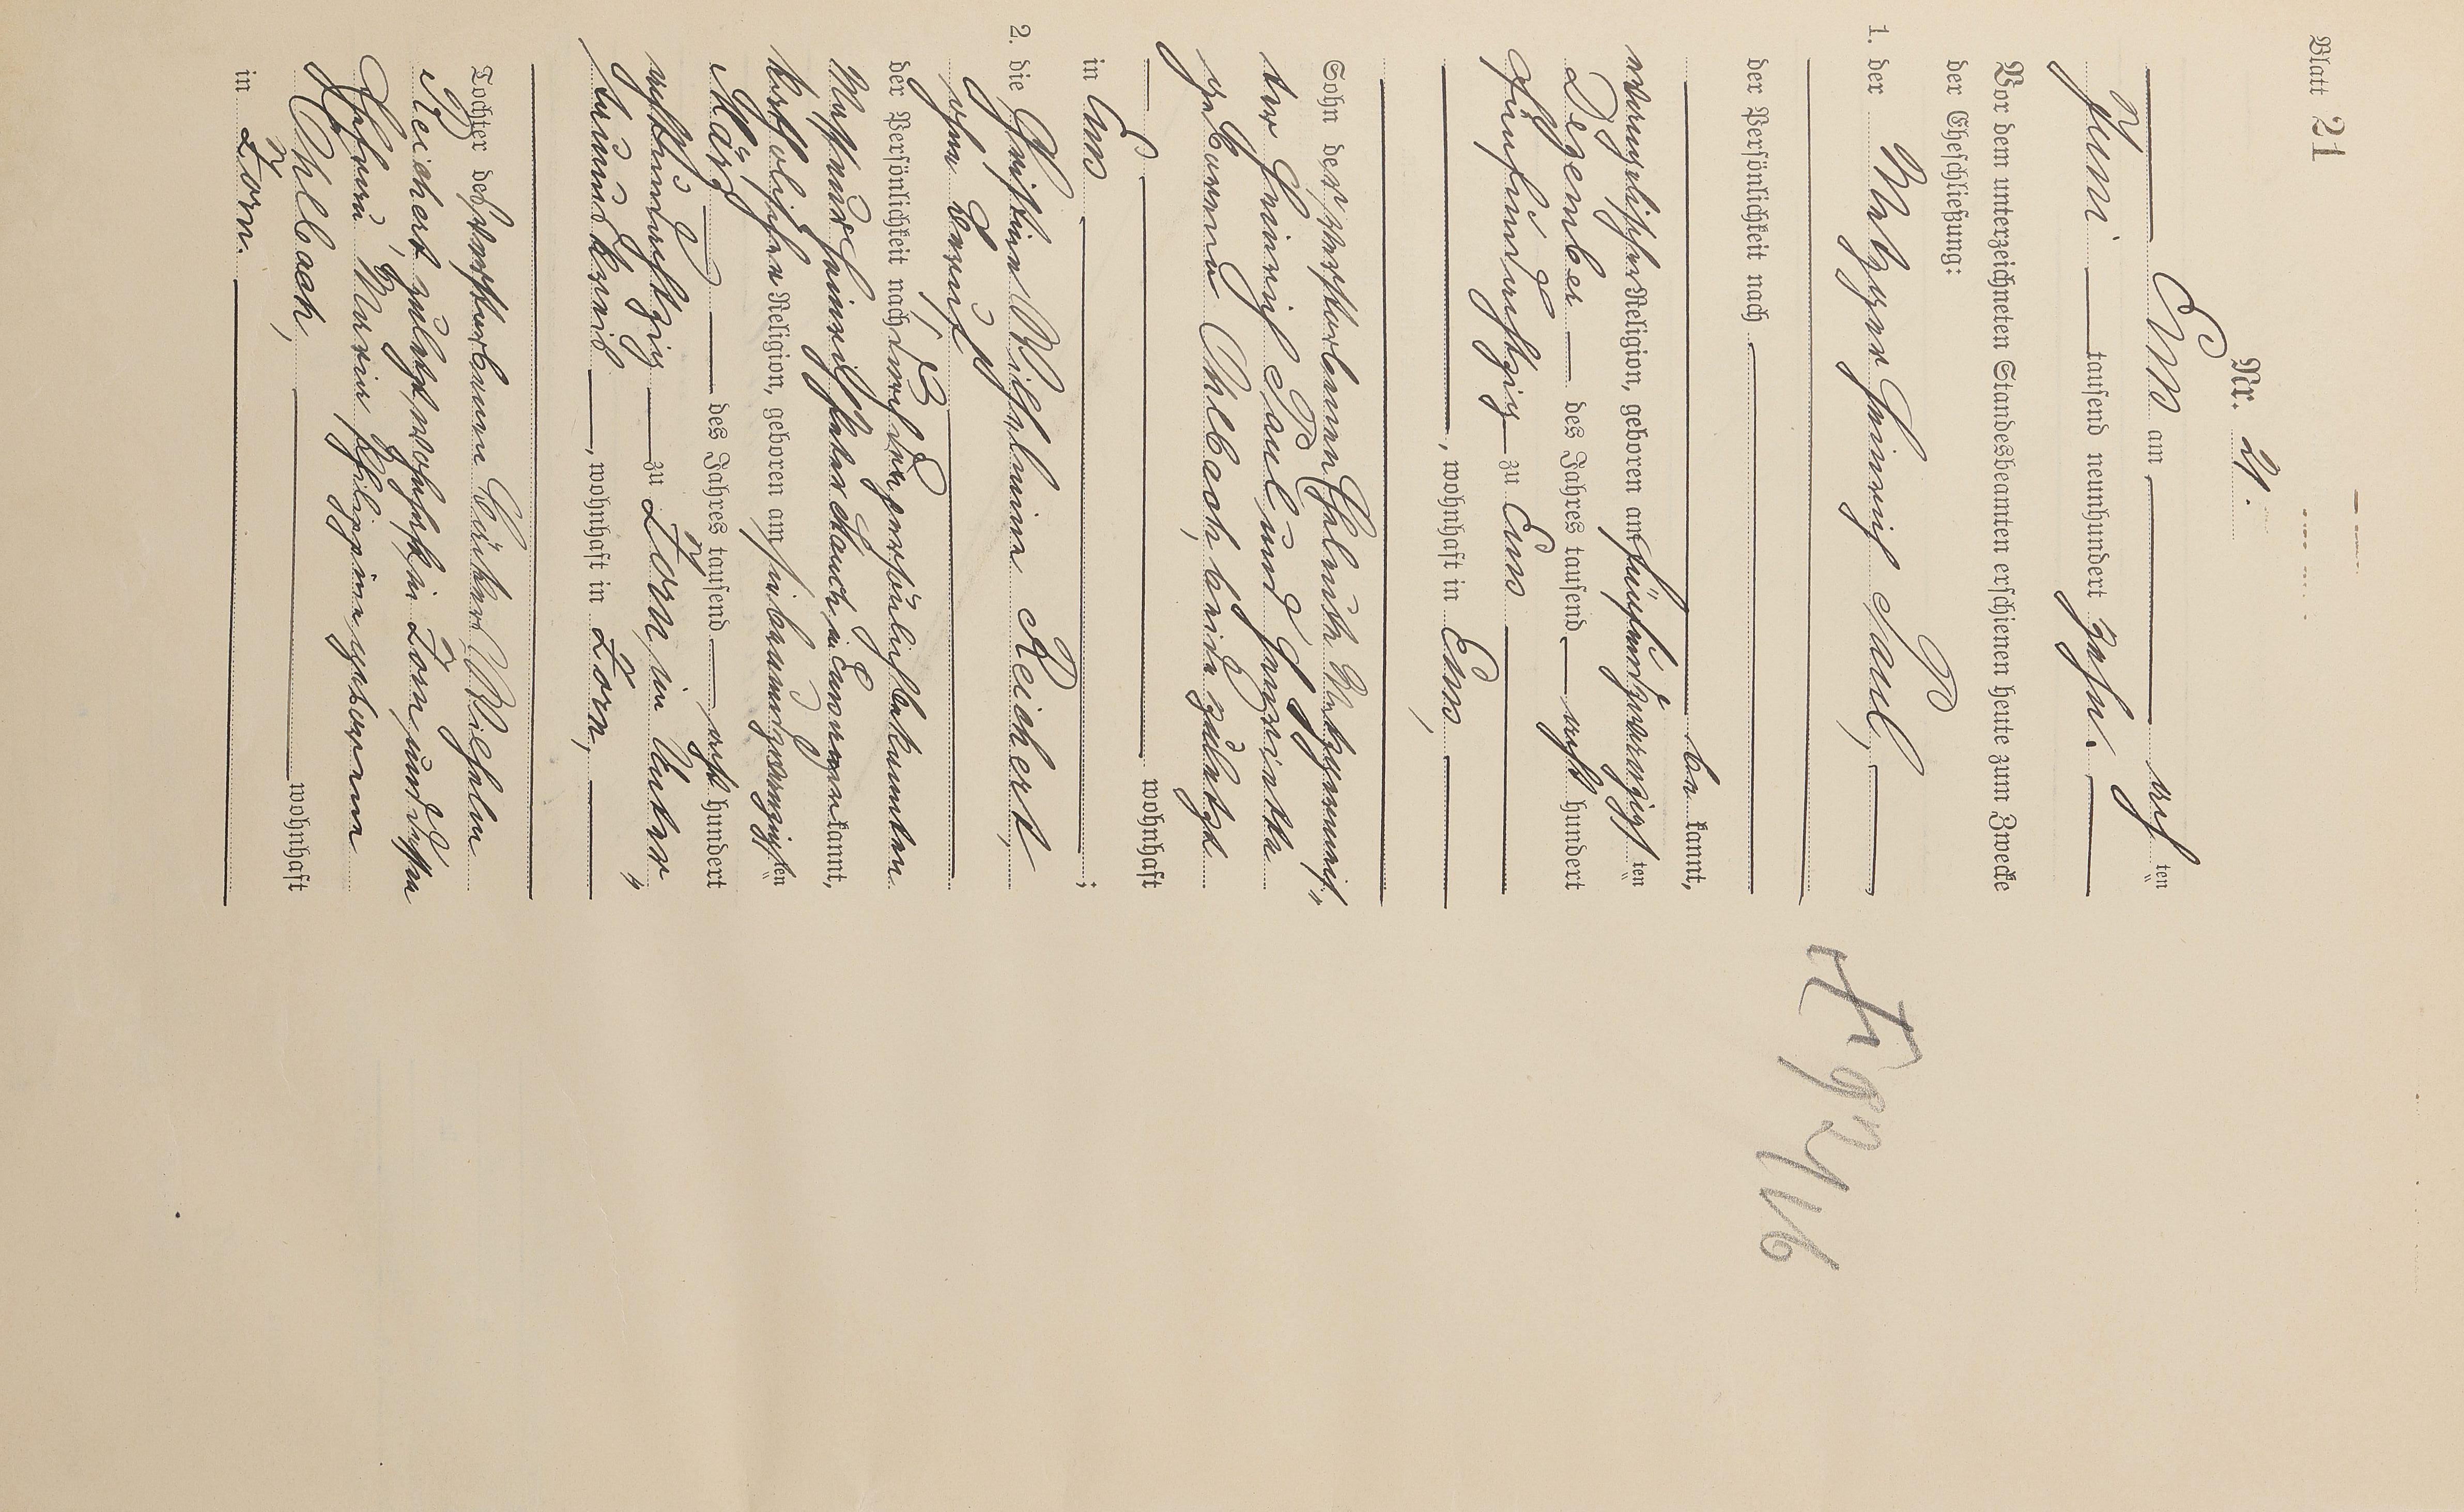 Blatt 21
Nr. 21.
Ems am acht ten
Juni tausend neunhundert zehn.
Vor dem unterzeichneten Standesbeamten erschienen heute zum Zwecke
der Eheschließung:
1. der Metzger Heinrich Paul,
der Persönlichkeit nach
be kannt,
evangelischer Religion, geboren am fünfundzwanzigsten
Dezember des Jahres tausend acht hundert
fünfundachtzig zu Ems
, wohnhaft in Ems,
Sohn der verstorbenen Eheleute Metzgermeis-
ter Heinrich Paul und Henriette
geborene Ohlbach, beide zuletzt
wohnhaft
in Ems ;
2. die Christine Wilhelmine Reichert,
ohne Beruf
der Persönlichkeit nach durch den persönlich bekannten
Metzger Heinrich Peter Bauch in Ems anerkannt,
katholischer Religion, geboren am siebenundzwanzigsten
März des Jahres tausend acht hundert
achtundachtzig zu Zorn, im Unter-
taunuskreis , wohnhaft in Zorn,
Tochter des verstorbenen Bäckers Wilhelm
Reichert, zuletzt wohnhaft in Zorn, und dessen
Ehefrau Marie Philippine geborene
Ohlbach, wohnhaft
in Zorn.